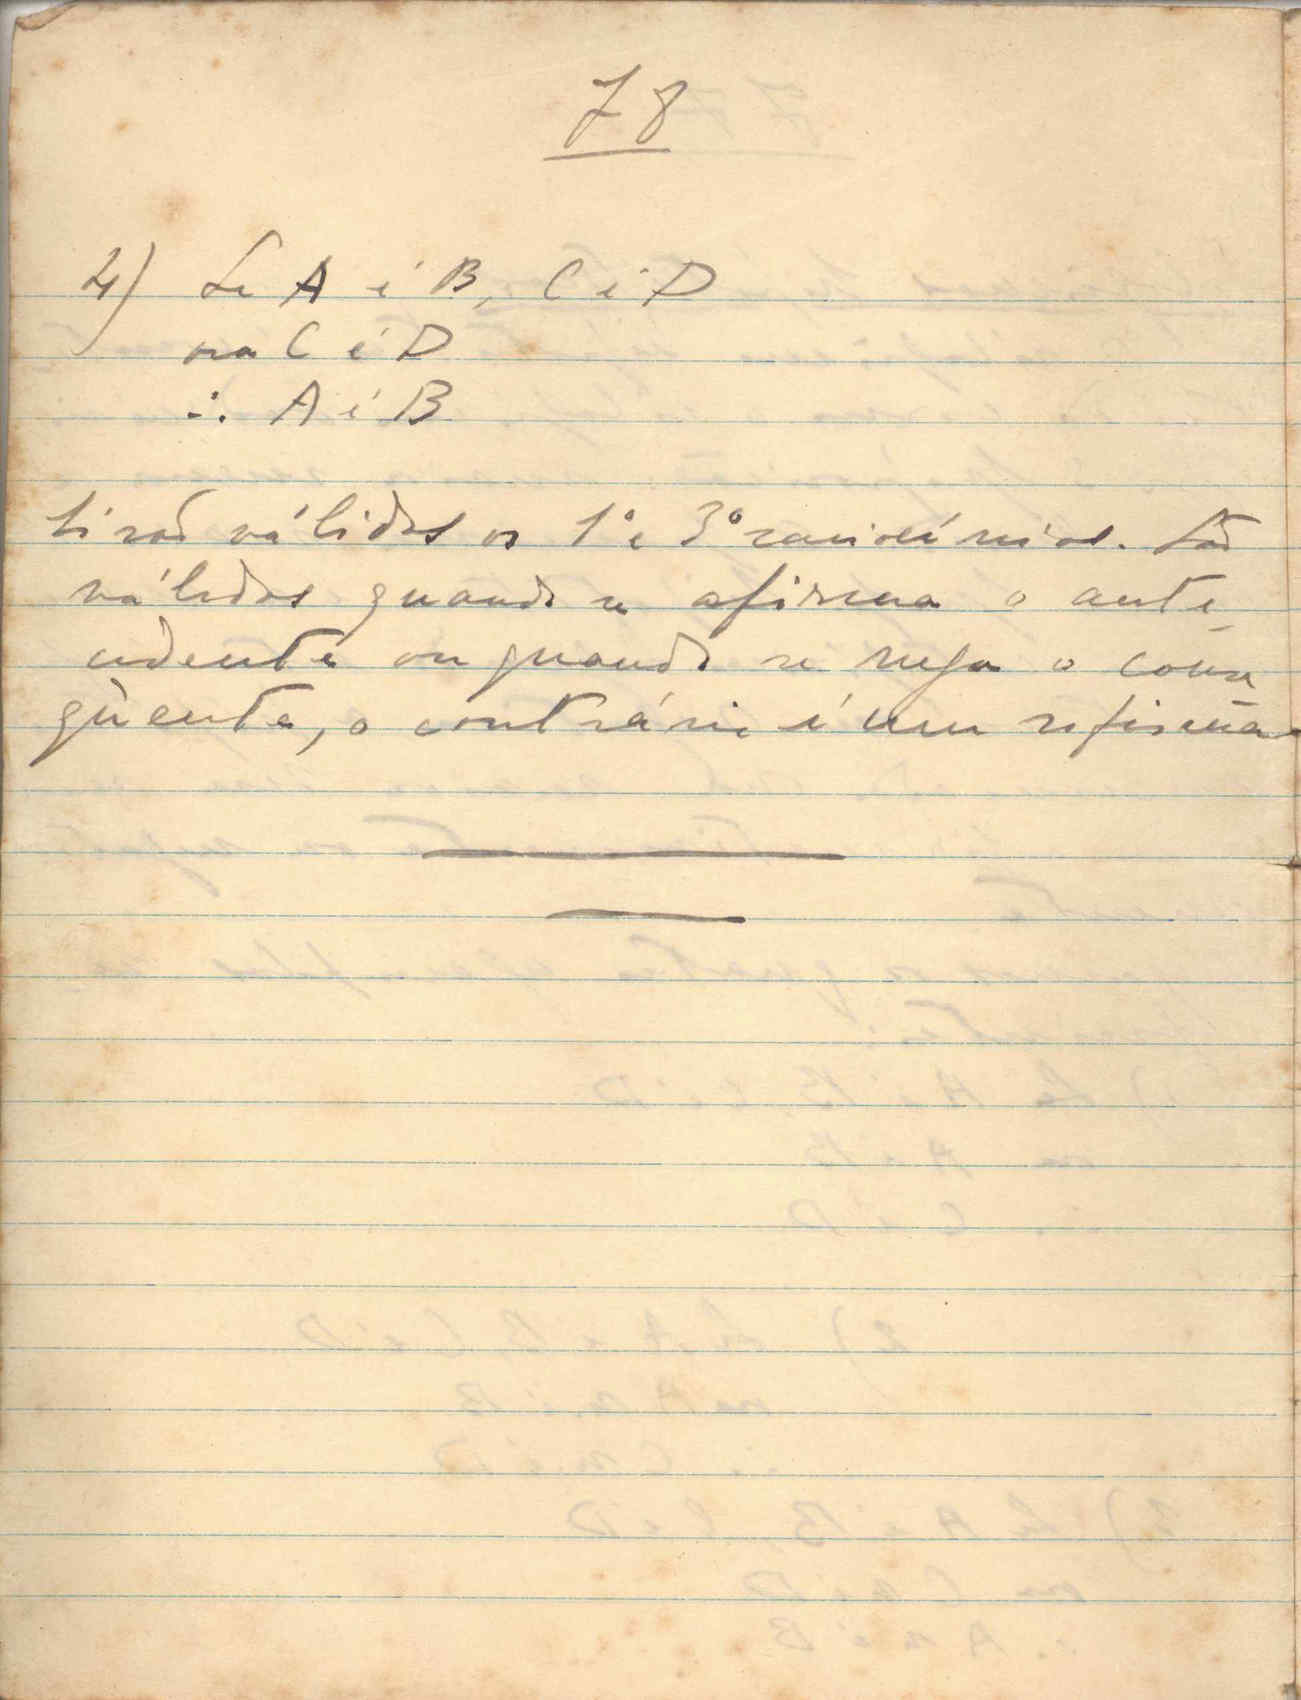 78
4) Se A é B, C é D
ora C é D
∴ A é B
Só são válidos os 1º e 3º raciocínios. São
válidos quando se afirma o ante-
cedente ou quando se nega o conse
qüente, o contrário é um sofisma